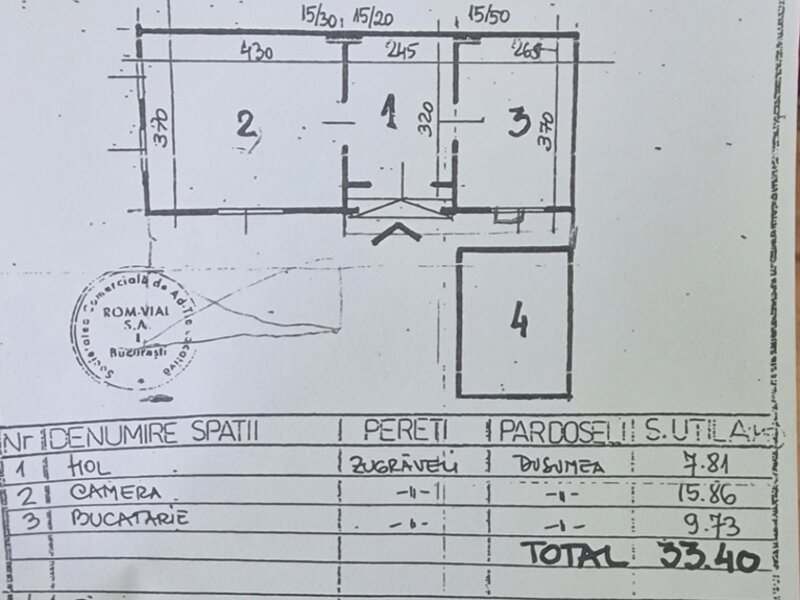 15/30 15/20 15/50
430 245 265
370 2 1 320 3 370
4
Societatea Comercială de
ROM-VIAL
S.A.
1
București
Nr DENUMIRE SPATII PERETI PARDOSELI S.UTILA
1 HOL ZUGRĂVELI DUSUMEA 7.81
2 CAMERA -11- -11- 15.86
3 BUCATARIE -11- -11- 9.73
TOTAL 33.40